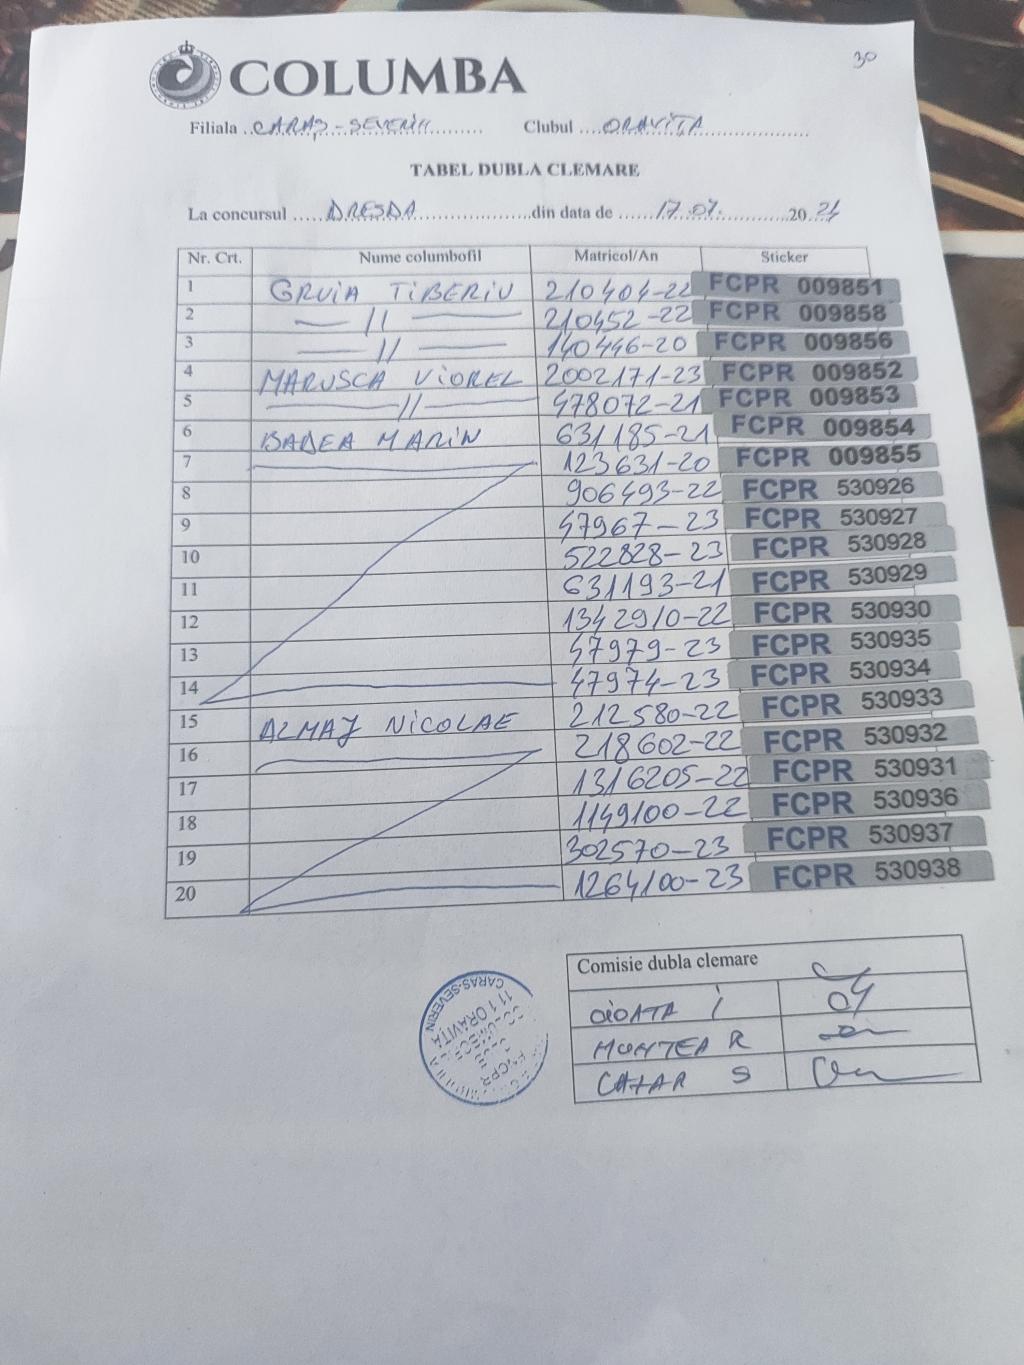 30
COLUMBA
Filiala CARAȘ-SEVERIN Clubul ORAVIȚA
TABEL DUBLA CLEMARE
La concursul DRESDA din data de 17.07. 2024
Nr. Crt. Nume columbofil Matricol/An Sticker
1 GRUIA TIBERIU 210404-22 FCPR 009851
2 — // — 210452-22 FCPR 009858
3 — // — 140446-20 FCPR 009856
4 MARUSCA VIOREL 2002171-23 FCPR 009852
5 — // — 478072-21 FCPR 009853
6 BADEA MARIN 631185-21 FCPR 009854
7 123631-20 FCPR 009855
8 906493-22 FCPR 530926
9 47967-23 FCPR 530927
10 522828-23 FCPR 530928
11 631193-21 FCPR 530929
12 1342910-22 FCPR 530930
13 47979-23 FCPR 530935
14 47974-23 FCPR 530934
15 ALMAJ NICOLAE 212580-22 FCPR 530933
16 218602-22 FCPR 530932
17 1316205-22 FCPR 530931
18 1149100-22 FCPR 530936
19 302570-23 FCPR 530937
20 1264100-23 FCPR 530938
Comisie dubla clemare
I
MUNTEA R
S
CARAS-SEVERIN
111 ORAVITA
FNCPR